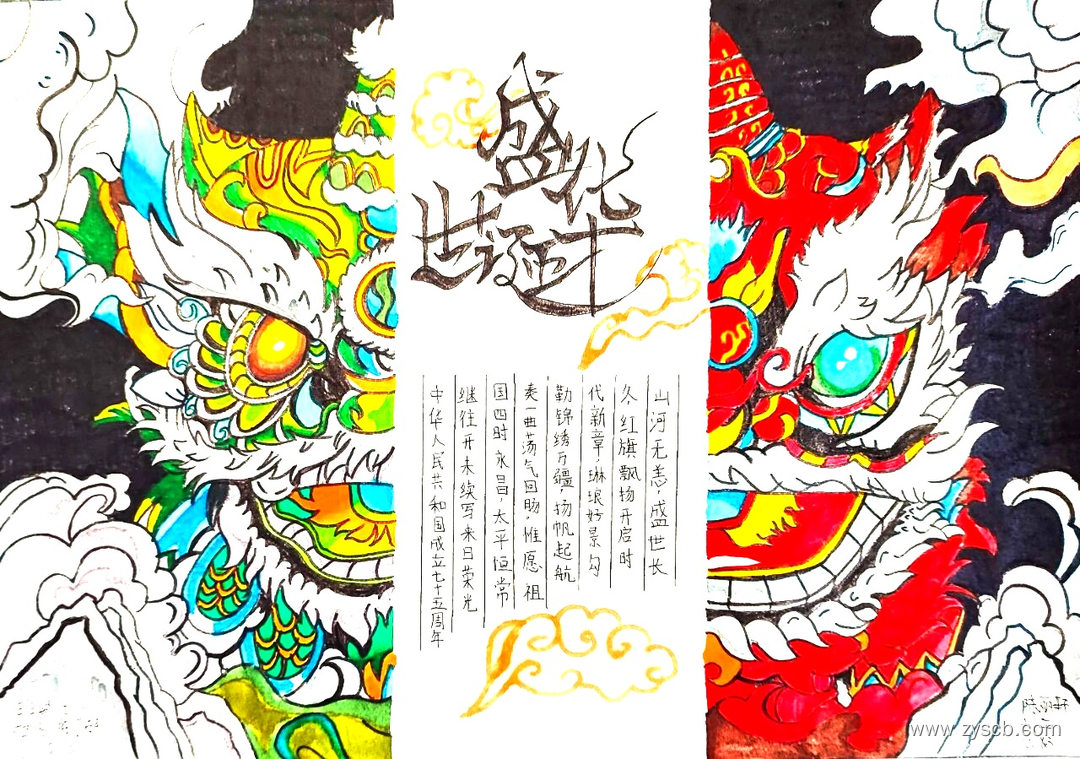 盛世华诞
山河无恙,盛世长
久,红旗飘扬开启时
代新章,琳琅好景勾
勒锦绣万疆,扬帆起航
奏一曲荡气回肠,惟愿祖
国四时永昌,太平恒常
继往开来续写来日荣光
中华人民共和国成立七十五周年
www.zyscb.com